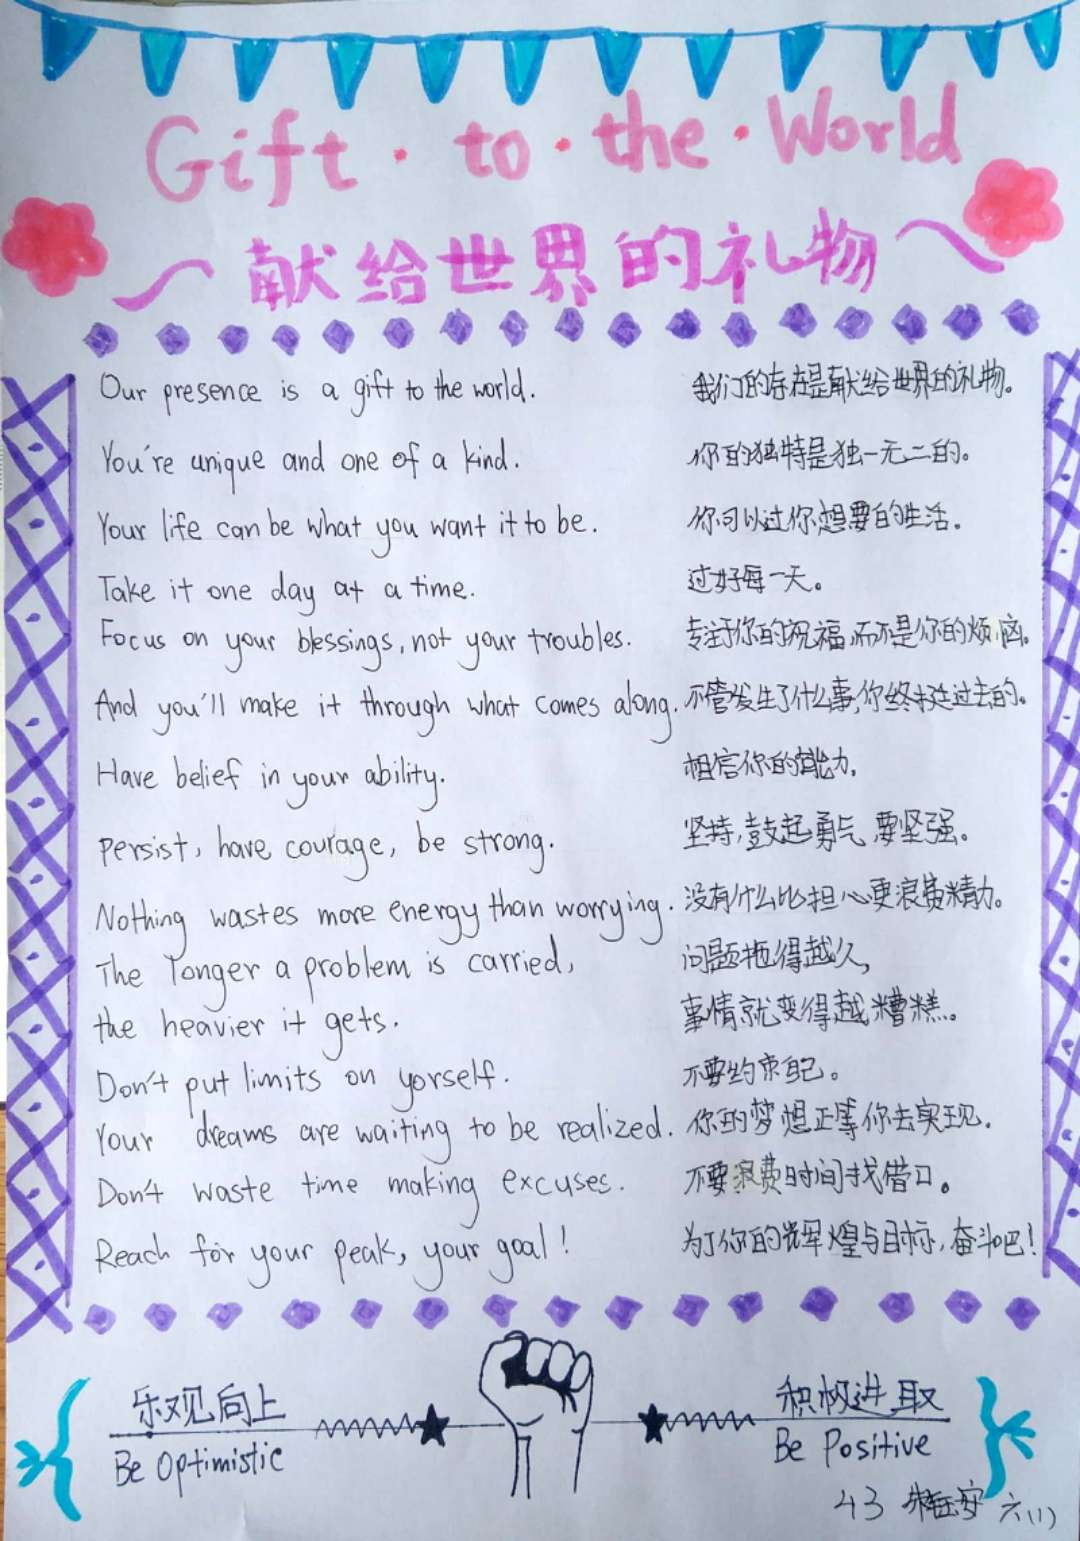 Gift · to · the · World
献给世界的礼物
Our presence is a gift to the world. 我们的存在是献给世界的礼物。
You're unique and one of a kind. 你的独特是独一无二的。
Your life can be what you want it to be. 你可以过你想要的生活。
Take it one day at a time. 过好每一天。
Focus on your blessings, not your troubles. 专注于你的祝福,而不是你的烦恼。
And you'll make it through what comes along. 不管发生了什么事,你终找过去的。
Have belief in your ability. 相信你的能力。
Persist, have courage, be strong. 坚持,鼓起勇气,要坚强。
Nothing wastes more energy than worrying. 没有什么比担心更浪费精力。
The longer a problem is carried, 问题拖得越久,
the heavier it gets. 事情就变得越糟糕。
Don't put limits on yorself. 不要约束自己。
Your dreams are waiting to be realized. 你的梦想正等你去实现。
Don't waste time making excuses. 不要浪费时间找借口。
Reach for your peak, your goal! 为了你的辉煌与目标,奋斗吧!
乐观向上 积极进取
Be Optimistic Be Positive
43 安 六(1)